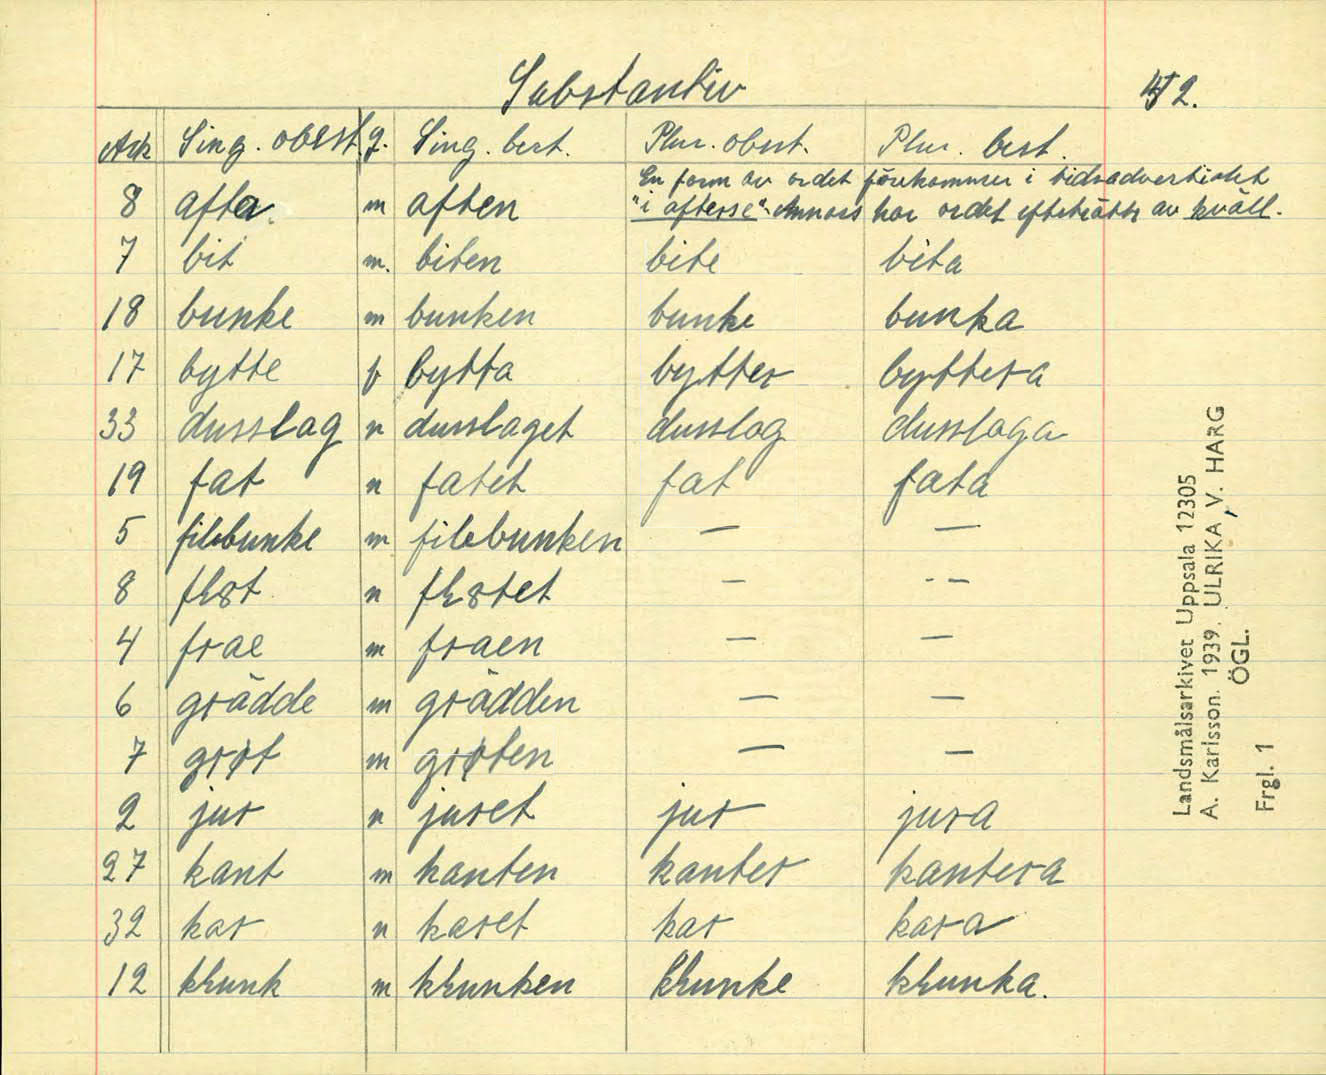 Substantiv
42.
Ark Sing. obest. g. Sing. best. Plur. obest. Plur. best.
En form av ordet förekommer i tidsadverbialet
8 afta m aften "i afterse". Annars har ordet efterträtts av kväll.
7 bit m. biten bite bita
18 bunke m bunken bunke bunka
17 bytte f bytta bytter byttera
33 dusslag n dusslaget dusslag dusslaga
19 fat n fatet fat fata
5 filebunke m filebunken — —
8 n — —
4 frae m fraen — —
6 grädde m grädden — —
7 grøt m grøten — —
2 jur n juret jur jura
27 kant m kanten kanter kantera
32 kar n karet kar kara
12 m
Landsmålsarkivet Uppsala 12305
A. Karlsson. 1939. ULRIKA, V. HARG
ÖGL.
Frgl. 1